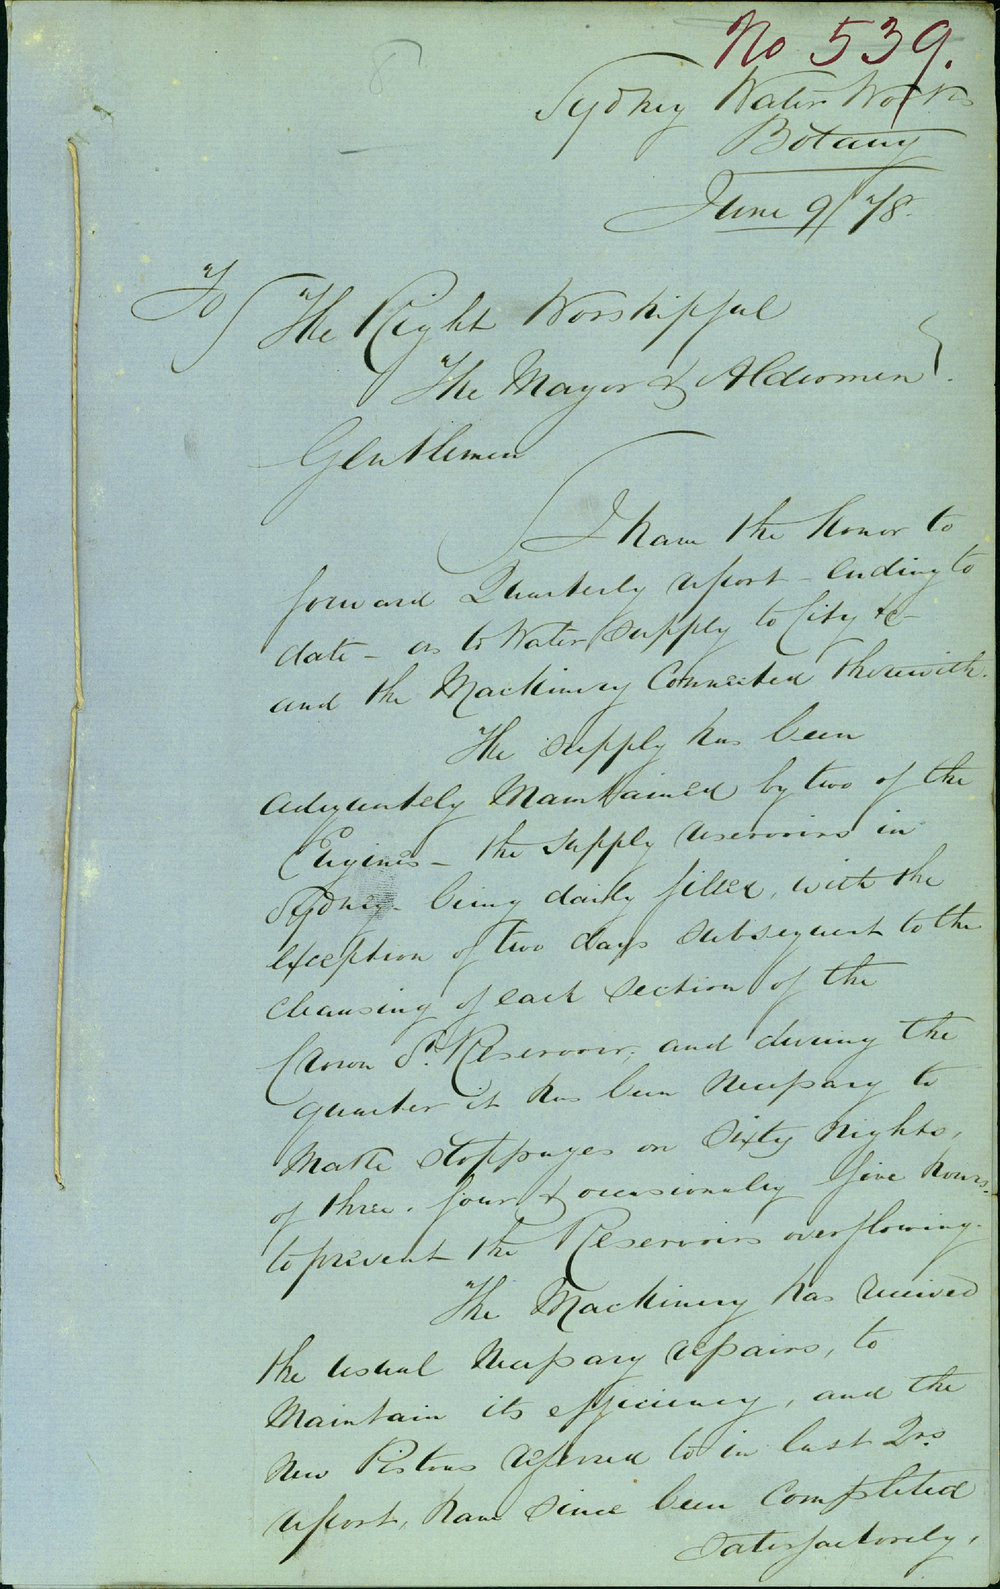 No 539.
Sydney Water Works
Botany
June 9/78.
To
The Right Worshipful
The Mayor & Aldermen.
Gentlemen
I have the honor to
forward Quarterly report - ending to
date - as to Water Supply to City &c -
and the Machinery Connected therewith.
The supply has been
adequately Maintained by two of the
Engines - the supply reservoirs in
Sydney - being daily filled, with the
exception of two days subsequent to the
cleansing of each section of the
Crown St. Reservoir. and during the
quarter it has been necessary to
Make stoppages on sixty nights,
of three. four & occasionaly five hours.
to prevent the Reservoirs overflowing.
The Machinery has received
the usual necessary repairs, to
Maintain its efficiency, and the
New Pistons referred to in last Qrs
report, have since been Completed
satisfactorely,